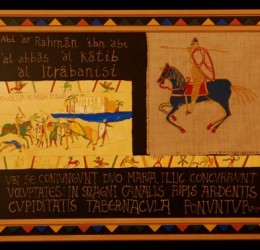 Abd ar Rahmân ibn abi
al abbâs al kâtib
al Itrâbanisi
UBI SE CONIUNGUNT DUO MARIA, ILLIC CONCURRUNT
VOLUPTATES: IN MAGNI CANALIS RIPIS ARDENTIS
CUPIDITATIS TABERNACULA PONUNTUR